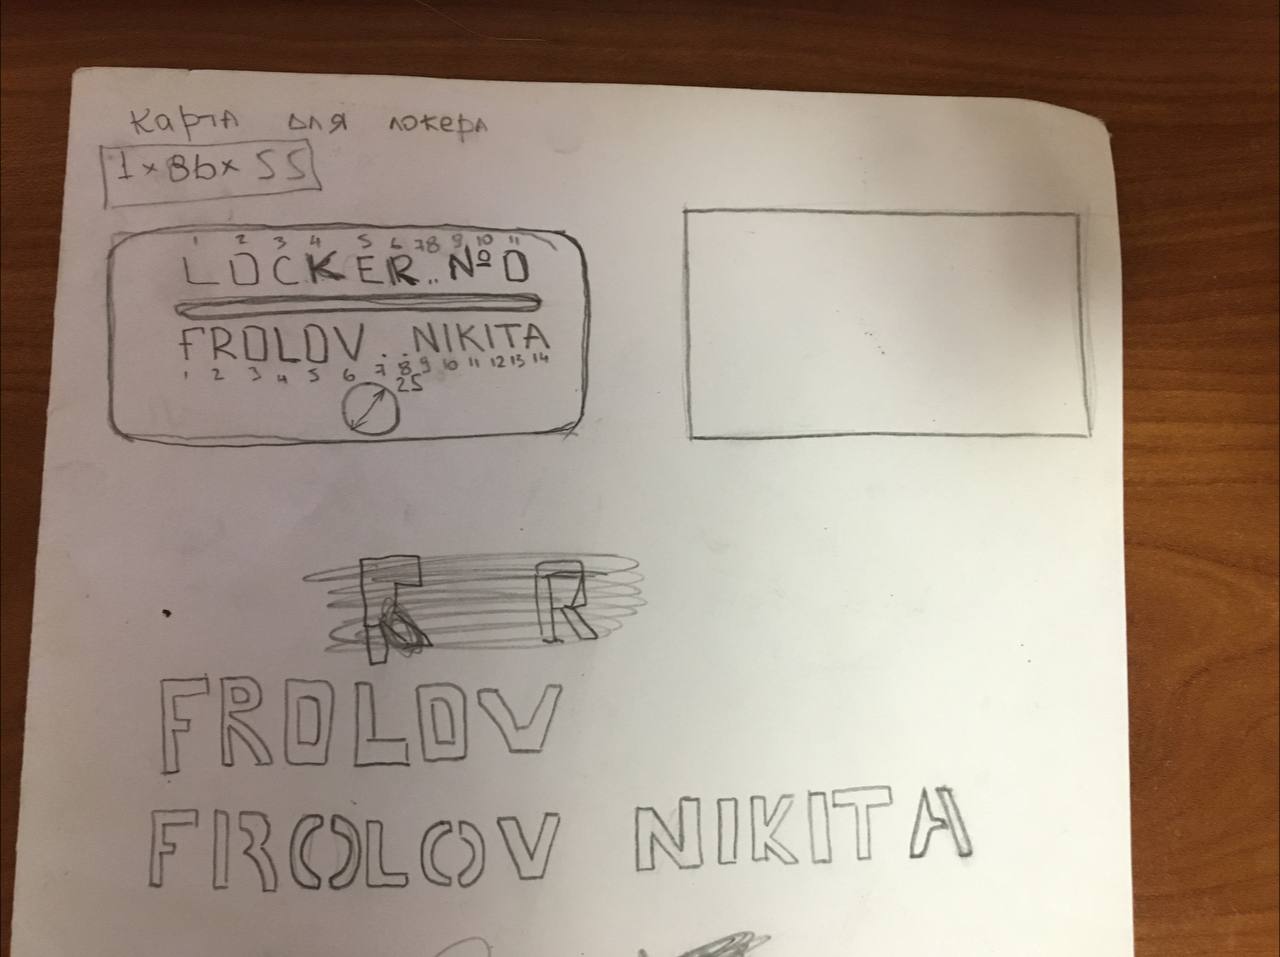 Карта для локера
1×86×55
1 2 3 4 5 6 7 8 9 10 11
LOCKER..№0
FROLOV..NIKITA
1 2 3 4 5 6 7 8 9 10 11 12 13 14
25
K R
FROLOV
FROLOV NIKITA